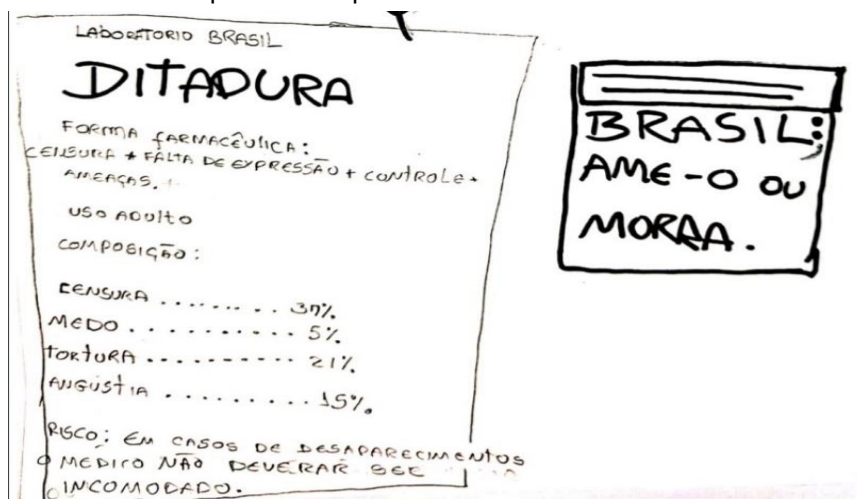 LABORATORIO BRASIL
DITADURA
FORMA FARMACÊUTICA:
CENSURA + FALTA DE EXPRESSÃO + CONTROLE +
AMEAÇAS.
USO ADULTO
COMPOSIÇÃO:
CENSURA ......... 37%
MEDO ........... 5%
TORTURA .......... 21%
ANGÚSTIA .......... 15%.
RISCO: EM CASOS DE DESAPARECIMENTOS
O MEDICO NÃO DEVERAR SER
INCOMODADO.
BRASIL:
AME-O OU
MORRA.